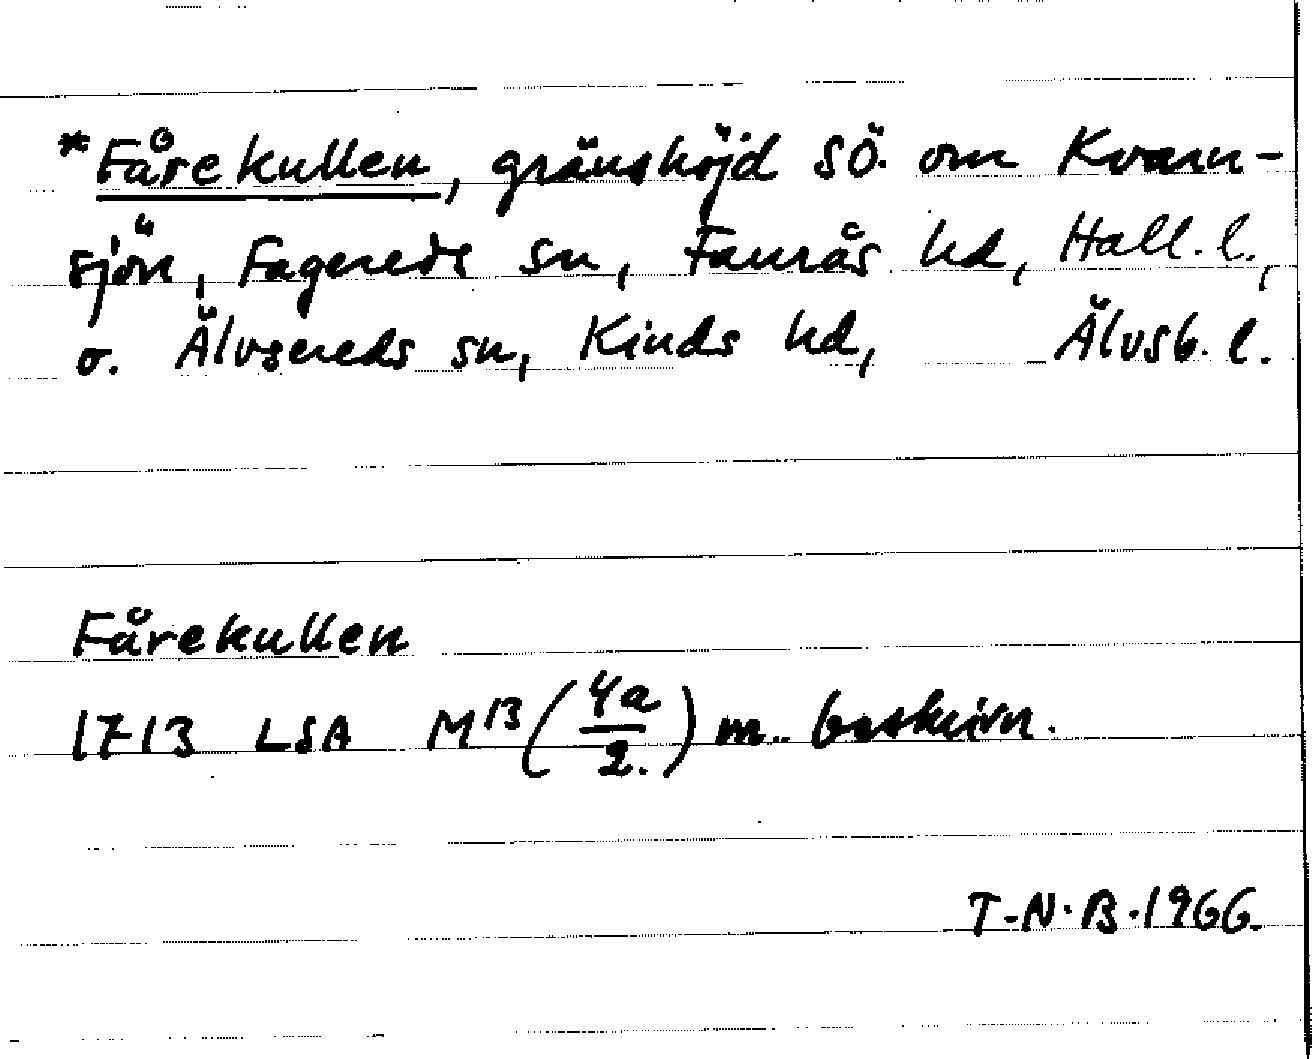 *Fårekullen, gränshöjd SÖ. om Kvarn-
sjön, Fagereds sn, Faurås hd, Hall. l.,
o. Älvsereds sn, Kinds hd, Älvsb. l.
Fårekullen
1713 LSA M13 (4a/2.) m. beskrivn.
T.N.B. 1966.